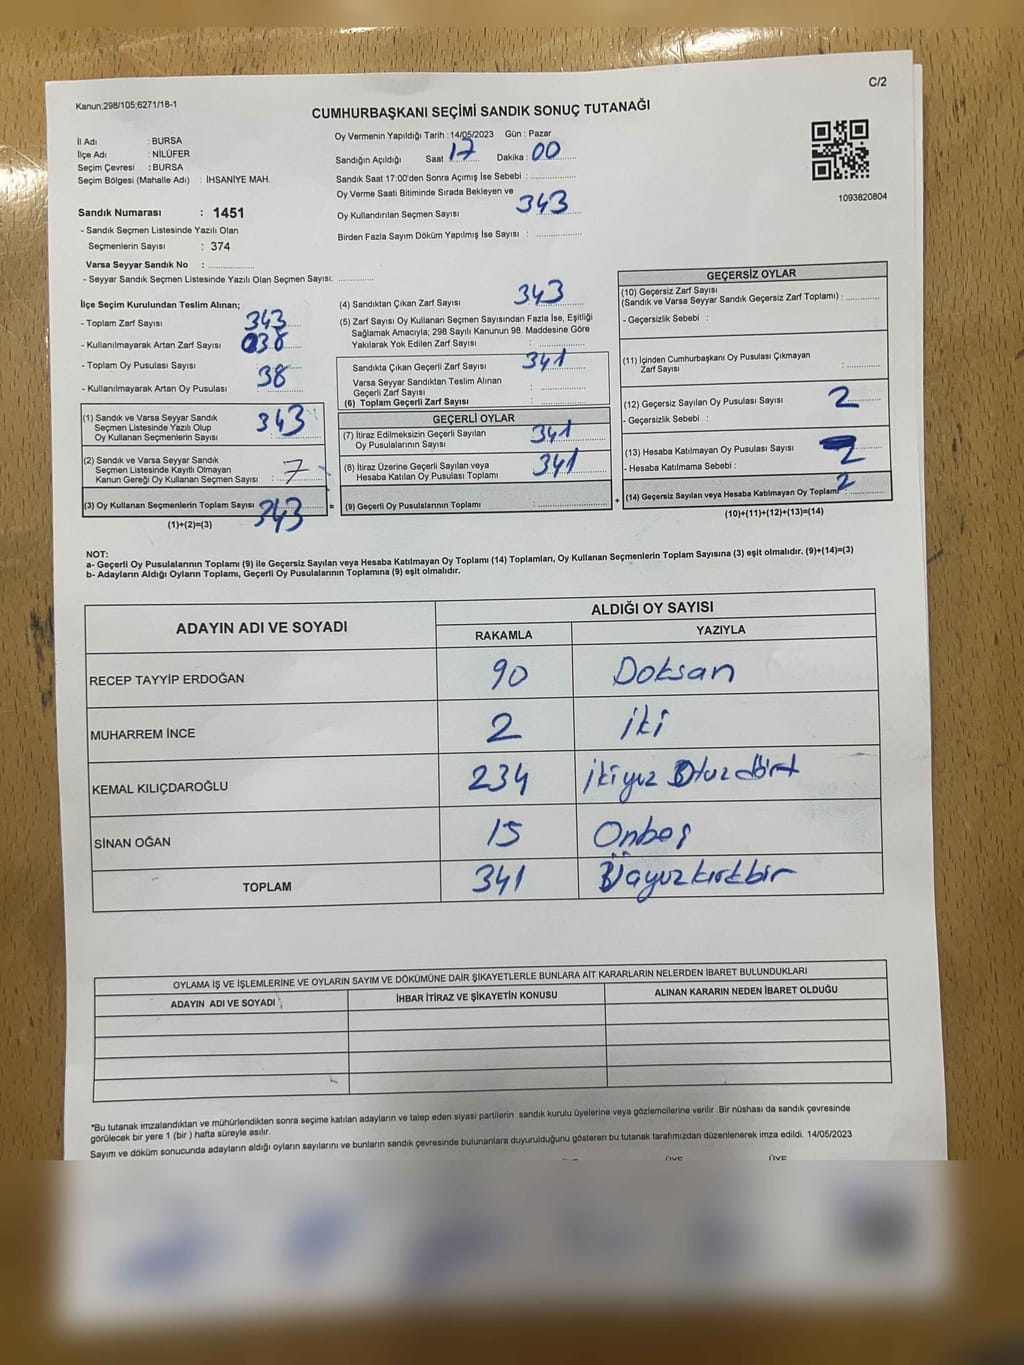 C/2
Kanun;298/105;6271/18-1
CUMHURBAŞKANI SEÇİMİ SANDIK SONUÇ TUTANAĞI
İl Adı : BURSA
İlçe Adı : NİLÜFER
Seçim Çevresi : BURSA
Seçim Bölgesi (Mahalle Adı) : İHSANİYE MAH.
Sandık Numarası : 1451
- Sandık Seçmen Listesinde Yazılı Olan
Seçmenlerin Sayısı : 374
Varsa Seyyar Sandık No : ................
- Seyyar Sandık Seçmen Listesinde Yazılı Olan Seçmen Sayısı: ............
Oy Vermenin Yapıldığı Tarih : 14/05/2023 Gün : Pazar
Sandığın Açıldığı Saat 17 Dakika : 00
Sandık Saat 17:00'den Sonra Açımış İse Sebebi : ................
Oy Verme Saati Bitiminde Sırada Bekleyen ve
Oy Kullandırılan Seçmen Sayısı 343
Birden Fazla Sayım Döküm Yapılmış İse Sayısı : ................
1093820804
İlçe Seçim Kurulundan Teslim Alınan;
- Toplam Zarf Sayısı 343
- Kullanılmayarak Artan Zarf Sayısı 038
- Toplam Oy Pusulası Sayısı : 38
- Kullanılmayarak Artan Oy Pusulası :
(1) Sandık ve Varsa Seyyar Sandık
Seçmen Listesinde Yazılı Olup
Oy Kullanan Seçmenlerin Sayısı 343
(2) Sandık ve Varsa Seyyar Sandık
Seçmen Listesinde Kayıtlı Olmayan
Kanun Gereği Oy Kullanan Seçmen Sayısı : 7
(3) Oy Kullanan Seçmenlerin Toplam Sayısı 343
(1)+(2)=(3)
(4) Sandıktan Çıkan Zarf Sayısı 343
(5) Zarf Sayısı Oy Kullanan Seçmen Sayısından Fazla İse, Eşitliği
Sağlamak Amacıyla; 298 Sayılı Kanunun 98. Maddesine Göre
Yakılarak Yok Edilen Zarf Sayısı : ................
Sandıkta Çıkan Geçerli Zarf Sayısı 341
Varsa Seyyar Sandıktan Teslim Alınan
Geçerli Zarf Sayısı : ................
(6) Toplam Geçerli Zarf Sayısı : ................
GEÇERLİ OYLAR
(7) İtiraz Edilmeksizin Geçerli Sayılan
Oy Pusulalarının Sayısı 341
(8) İtiraz Üzerine Geçerli Sayılan veya
Hesaba Katılan Oy Pusulası Toplamı 341
= (9) Geçerli Oy Pusulalarının Toplamı : ................ +
GEÇERSİZ OYLAR
(10) Geçersiz Zarf Sayısı
(Sandık ve Varsa Seyyar Sandık Geçersiz Zarf Toplamı) : ............
- Geçersizlik Sebebi :
(11) İçinden Cumhurbaşkanı Oy Pusulası Çıkmayan
Zarf Sayısı : ............
(12) Geçersiz Sayılan Oy Pusulası Sayısı 2
- Geçersizlik Sebebi :
(13) Hesaba Katılmayan Oy Pusulası Sayısı 2
- Hesaba Katılmama Sebebi :
(14) Geçersiz Sayılan veya Hesaba Katılmayan Oy Toplamı 2
(10)+(11)+(12)+(13)=(14)
NOT:
a- Geçerli Oy Pusulalarının Toplamı (9) ile Geçersiz Sayılan veya Hesaba Katılmayan Oy Toplamı (14) Toplamları, Oy Kullanan Seçmenlerin Toplam Sayısına (3) eşit olmalıdır. (9)+(14)=(3)
b- Adayların Aldığı Oyların Toplamı, Geçerli Oy Pusulalarının Toplamına (9) eşit olmalıdır.
ADAYIN ADI VE SOYADI ALDIĞI OY SAYISI
RAKAMLA YAZIYLA
RECEP TAYYİP ERDOĞAN 90 Doksan
MUHARREM İNCE 2 iki
KEMAL KILIÇDAROĞLU 234 ikiyuz Otuzdört
SİNAN OĞAN 15 Onbeş
TOPLAM 341
OYLAMA İŞ VE İŞLEMLERİNE VE OYLARIN SAYIM VE DÖKÜMÜNE DAİR ŞİKAYETLERLE BUNLARA AİT KARARLARIN NELERDEN İBARET BULUNDUKLARI
ADAYIN ADI VE SOYADI İHBAR İTİRAZ VE ŞİKAYETİN KONUSU ALINAN KARARIN NEDEN İBARET OLDUĞU
"Bu tutanak imzalandıktan ve mühürlendikten sonra seçime katılan adayların ve talep eden siyasi partilerin sandık kurulu üyelerine veya gözlemcilerine verilir .Bir nüshası da sandık çevresinde
görülecek bir yere 1 (bir ) hafta süreyle asılır.
Sayım ve döküm sonucunda adayların aldığı oyların sayılarını ve bunların sandık çevresinde bulunanlara duyurulduğunu gösteren bu tutanak tarafımızdan düzenlenerek imza edildi. 14/05/2023
ÜYE ÜYE